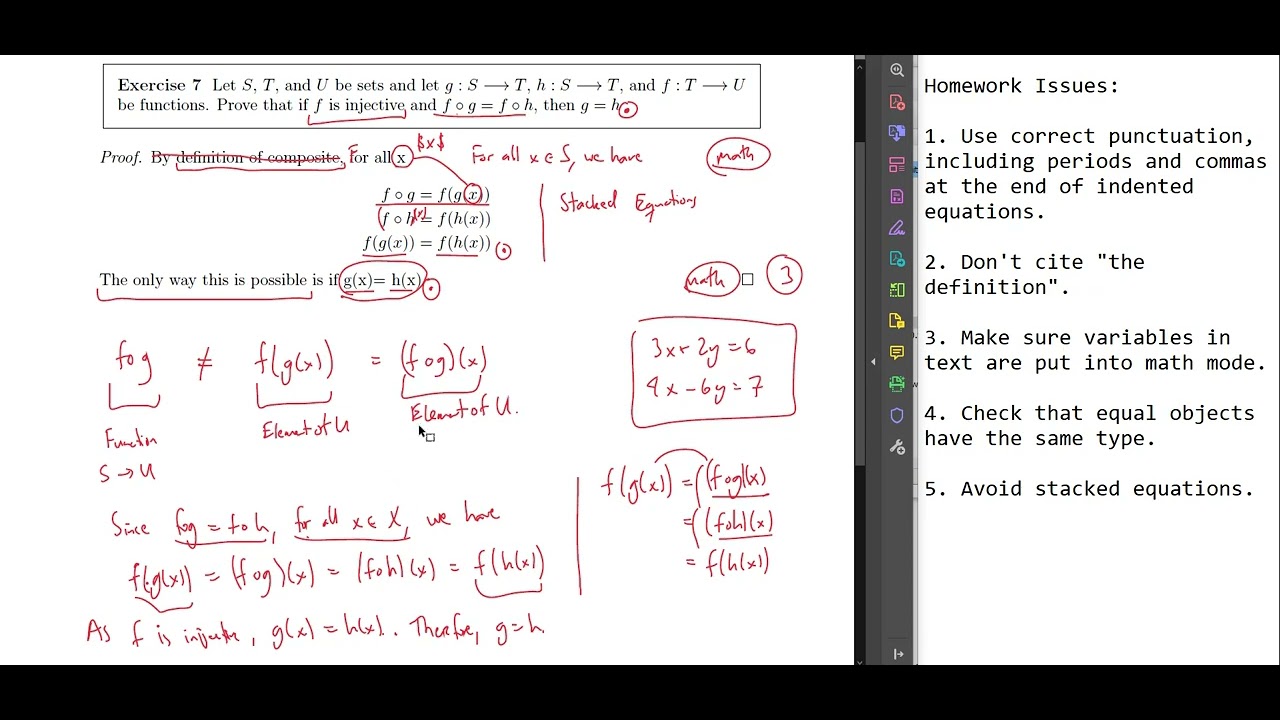 Exercise 7 Let S, T, and U be sets and let g : S ⟶ T, h : S ⟶ T, and f : T ⟶ U
be functions. Prove that if f is injective and f ∘ g = f ∘ h, then g = h.
$x$
Prof. By definition of composite, For all x
For all x ∈ S, we have
math
f ∘ g = f(g(x))
(f ∘ h)(x) = f(h(x))
f(g(x)) = f(h(x)).
Stacked Equations
The only way this is possible is if g(x)= h(x).
math □ 3
f∘g ≠ f(g(x)) = (f∘g)(x)
Function
S → U
Element of U
Element of U.
3x + 2y = 6
4x − 6y = 7
Since f∘g = f∘h, for all x ∈ X, we have
f(g(x)) = (f∘g)(x) = (f∘h)(x) = f(h(x))
As f is injective, g(x) = h(x). Therefore, g = h.
f(g(x)) = (f∘g)(x)
= (f∘h)(x)
= f(h(x))
Homework Issues:
1. Use correct punctuation,
including periods and commas
at the end of indented
equations.
2. Don't cite "the
definition".
3. Make sure variables in
text are put into math mode.
4. Check that equal objects
have the same type.
5. Avoid stacked equations.